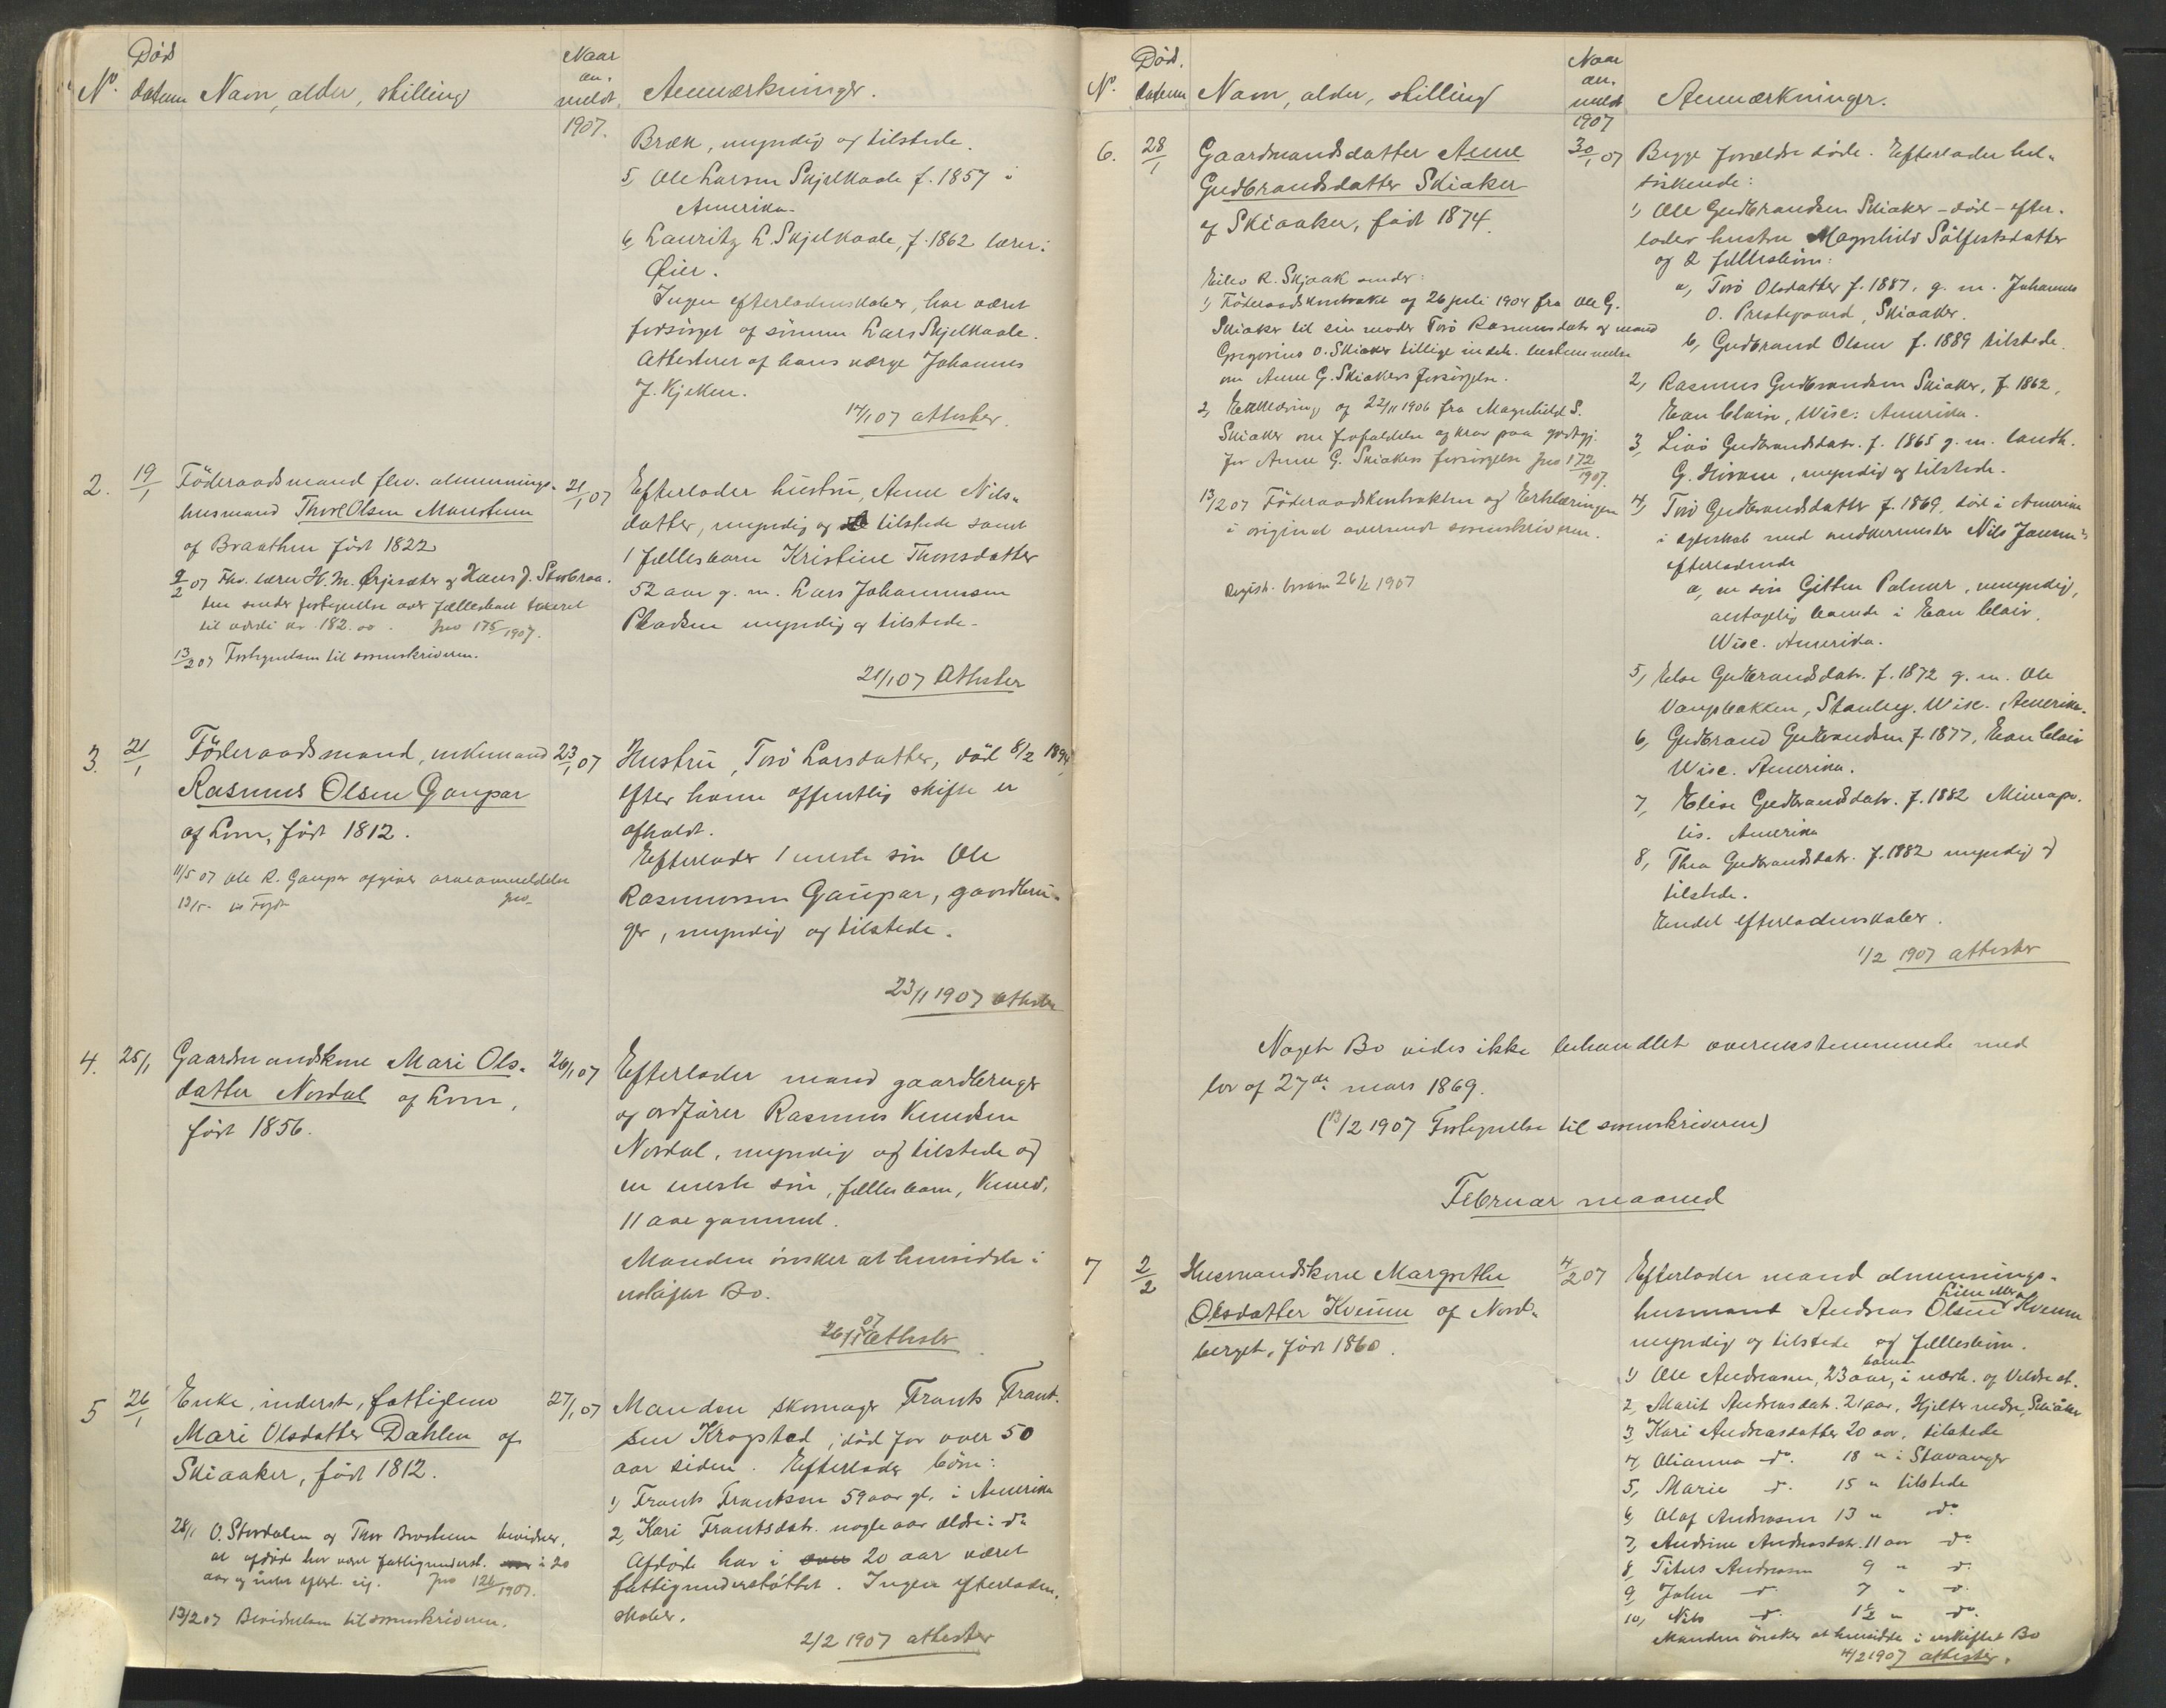 No. Død datum Navn, alder, stilling Naar an- meldt 1907. Anmærkninger.
Bræk, myndig og tilstede.
5, Ole Larsen Skjelkvale f. 1857 i
Amerika.
6, Lauritz L. Skjelkvale, f. 1862 lærer i
Øier.
Ingen efterladenskaber, har været
forsørget af sønnen Lars Skjelkvale.
Attesterer af hans værge Johannes
J. Kjeken.
14/1 07 attester.
2. 19/1 Föderaadsmand flev. almennings-
husmand Thore Olsen Maurstuen
af Braathen født 1822
9/2 07 Fhv. lærer H. M. Ørjesæter og Hans J. Storbraa-
ten sender fortegnelse over fællesboet takseret
til værdi kr. 182.00. Jno 175/1907.
13/2 07 Fortegnelsen til sorenskriveren.
21/1 07 Efterlader hustru, Anne Nils-
datter, myndig og tilstede samt
1 fællesbarn Kristine Thoresdatter
52 aar g. m. Lars Johannessen
Pladsen myndig og tilstede.
21/1 07 Attester
3. 21/1 Föderaadsmand, enkemand
Rasmus Olsen Gaupar
af Lom, født 1812.
11/5 07 Ole R. Gaupar afgiver arveanmeldelse
13/5 - til Fogd. Jno-
23/1 07 Hustru, Torö Larsdatter, död 8/2 1894,
efter hvem offentlig skifte er
afholdt.
Efterlader 1 eneste sön Ole
Rasmussen Gaupar, gaardbru-
ger, myndig og tilstede.
23/1 1907 attester
4. 25/1 Gaardmandskone Mari Ols-
datter Nordal af Lom,
født 1856.
26/1 07 Efterlader mand gaardbruger
og ordfører Rasmus Knudsen
Nordal, myndig og tilstede og
en eneste sön, fællesbarn, Knud,
11 aar gammel.
Manden önsker at hensidde i
uskiftet Bo.
26/1 07 Attester
5 26/1 Enke, inderst, fattiglem
Mari Olsdatter Dahlen af
Skiaaker, født 1812.
28/1 O. Stordalen og Thor Brostuen bevidner,
at afdøde har været fattigunderst. i 20
aar og intet efterl. sig. Jno 126/1907.
13/2 07 Bevidnelsen til sorenskriveren.
27/1 07 Manden skomager Frants Frant-
sen Krogstad, död for over 50
aar siden. Efterlader börn:
1) Frants Frantsen 59 aar gl. i Amerika
2, Kari Frantsdatr. nogle aar ældre i do
Afdøde har i over 20 aar været
fattigunderstøttet. Ingen efterladen-
skaber.
2/2 1907 attester
No. Død. datum Navn, alder, stilling Naar an- meldt 1907 Anmærkninger.
6. 28/1 Gaardmandsdatter Anne
Gudbrandsdatter Skiaker
af Skiaaker, født 1874.
Eilev R. Skjaak sender:
1) Föderaadskontrakt af 26 juli 1904 fra Ole G.
Skiaker til sin moder Torö Rasmusdatr og mand
Gregorius O. Skiaker tillige indeh. bestemmelse
om Anne G. Skiakers forsörgelse.
2, Erklæring af 22/11 1906 fra Magnhild S.
Skiaker om frafaldelse af krav paa godtgj.
for Anne G. Skiakers forsörgelse Jno 172/1907.
13/2 07 Föderaadskontrakten og Erklæringen
i original oversendt sorenskriveren.
26/2 1907
30/1 07 Begge forældre döde. Efterlader hel-
söskende:
1) Ole Gudbrandsen Skiaker - död - efter-
lader hustru Magnhild Sölfestsdatter
og 2 fællesbörn:
a, Torö Olsdatter f. 1887, g. m. Johannes
O. Prestegaard, Skiaaker.
b, Gudbrand Olsen f. 1889 tilstede.
2, Rasmus Gudbrandsen Skiaker, f. 1862,
Eau Claire, Wisc: Amerika.
3, Livö Gudbrandsdatr. f. 1865 g. m. landh.
G. Hiran, myndig og tilstede.
4, Torö Gudbrandsdatter f. 1869, död i Amerika
i egteskab med Nils Jansen
efterladende
a, en sön Gilten Palmer, umyndig,
antagelig boende i Eau Clair,
Wisc. Amerika.
5, Else Gudbrandsdatr. f. 1872 g. m. Ole
Vangbakken, Stanley. Wisc. Amerika.
6, Gudbrand Gudbrandsen f. 1877, Eau Clair
Wisc. Amerika.
7, Elise Gudbrandsdatr. f. 1882 Mineapo-
lis. Amerika
8, Thea Gudbrandsdatr. f. 1882 myndig og
tilstede.
Endel efterladenskaber.
1/2 1907 attester
Noget Bo vides ikke behandlet overensstemmende med
lov af 27de mars 1869.
(13/2 1907 Fortegnelse til sorenskriveren)
Februar maaned
7 2/2 Husmandskone Margrethe
Olsdatter Kvenne af Nord-
berget, født 1860.
4/2 07 Efterlader mand almennings-
husmand Andreas Olsen Kvenne
myndig og tilstede og fællesbörn.
1) Ole Andreasen, 23 aar, boende i nærh. af Veldre st.
2, Marit Andreasdatr. 21 aar, Hjelter nedre, Skiaker
3, Kari Andreasdatter 20 aar, tilstede
4, Olianna do. 18 " i Stavanger
5, Marie do. 15 " tilstede
6, Olaf Andreasen 13 " do
7, Andrine Andreasdatr. 11 aar do
8, Titus Andreasen 9 " do
9, John do 7 " do
10, Nils do 1 1/2 " do
Manden önsker at hensidde i uskiftet Bo
4/2 1907 attester.